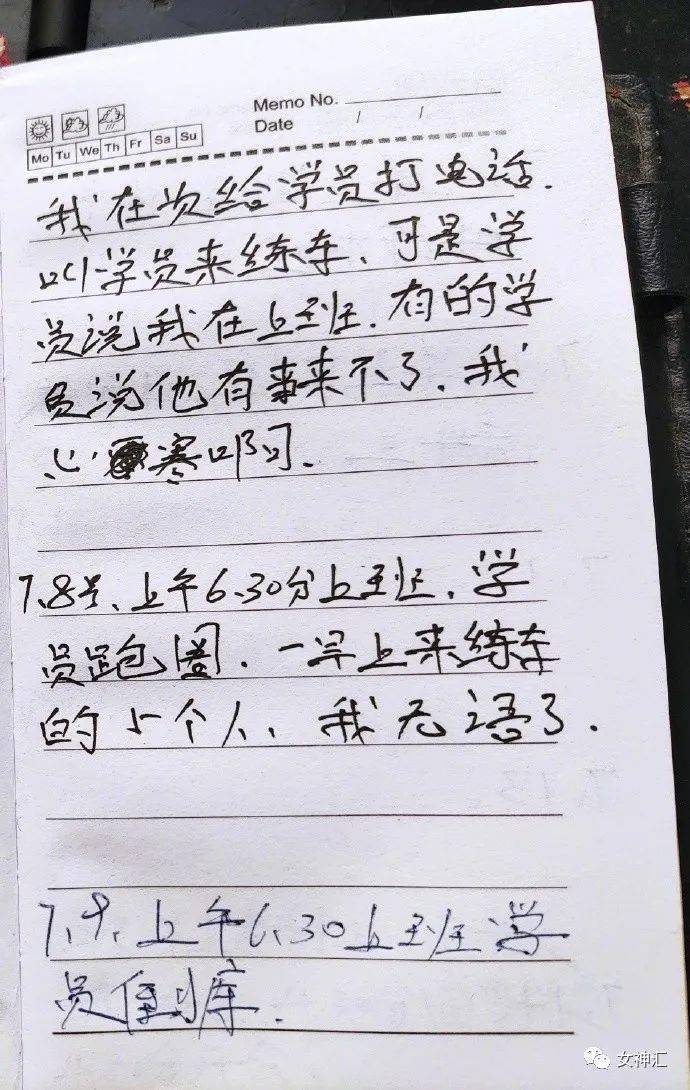 Memo No.
Date / /
Mo Tu We Th Fr Sa Su
我在次给学员打电话.
叫学员来练车、可是学
员说我在上班.有的学
员说他有事来不了.我
心寒啊.
7、8号、上午6、30分上班、学
员跑圈.一早上来练车
的5个人、我无语了.
7、9、上午6、30上班学
员倒库.
女神汇